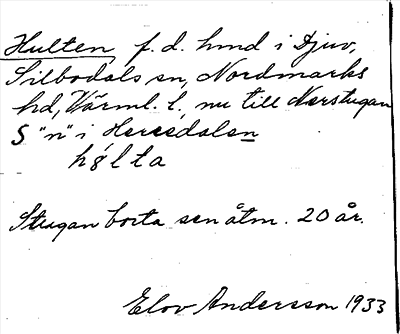 Hulten f. d. hmd i Djuv,
Silbodals sn, Nordmarks
hd, Värml. l., nu till Norstugan
S "n" i Heresdalen
hølta
Stugan borta sen åtm. 20 år.
Elov Andersson 1933